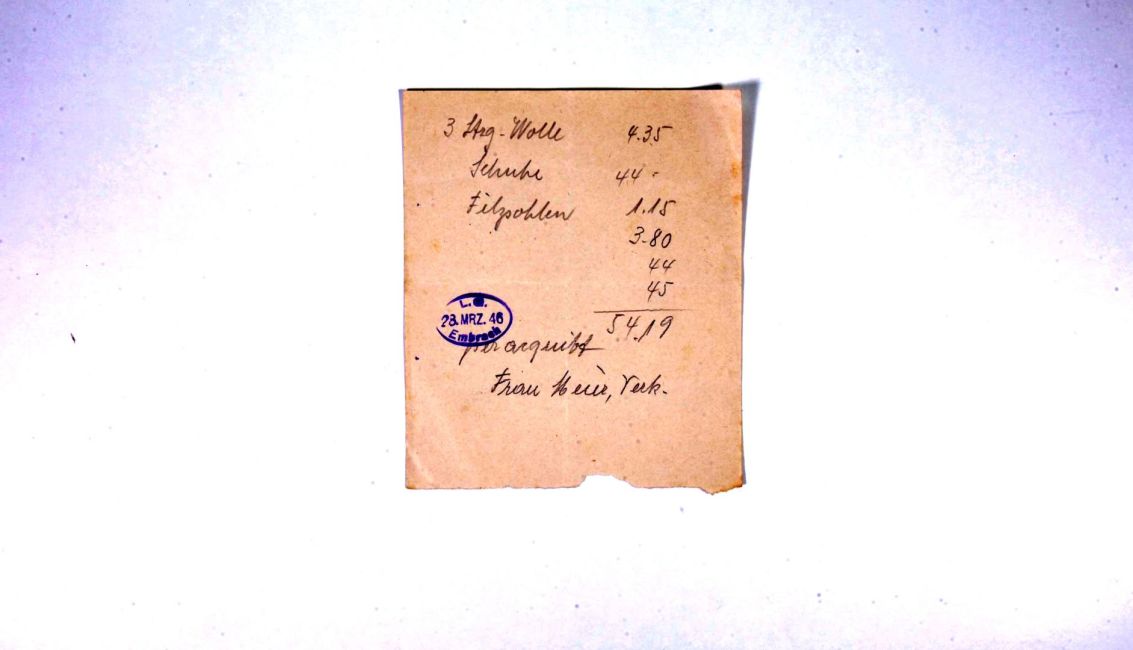 3 Strg-Wolle 4.35
Schuhe 44 -
Filzsohlen 1.15
3.80
44
45
54.19
L. G.
28. MRZ. 46
Embrach
per acquit
Frau Meier, Verk.